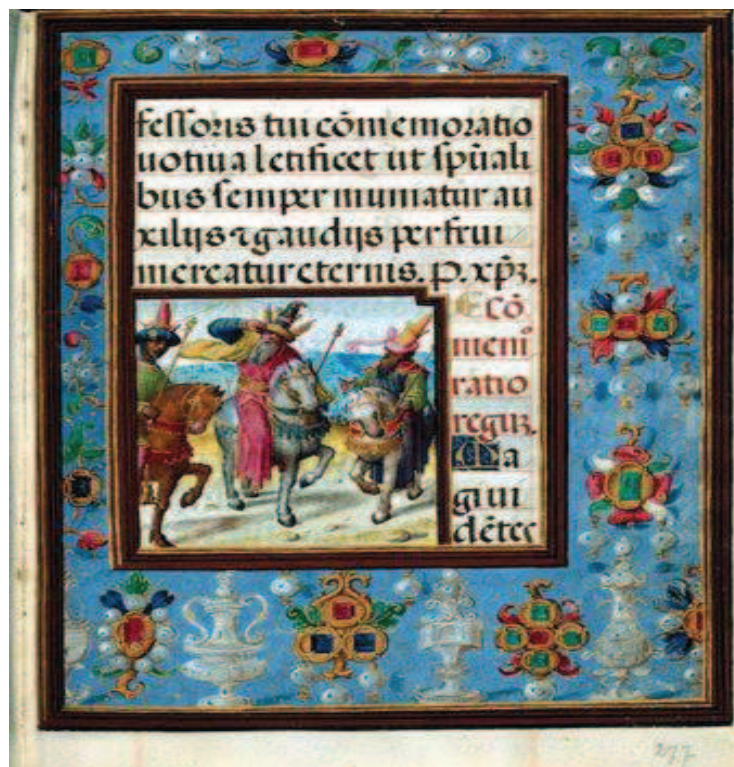 fessoris tui cōmemoratio
uotiua letificet ut sp̄uali
bus semper muniatur au
xilijs ⁊ gaudijs perfrui
mereatur eternis. P. xp̄ꝫ.
Cō
mem
ratio
reguꝫ.
Ma
gi ui
dētes
277